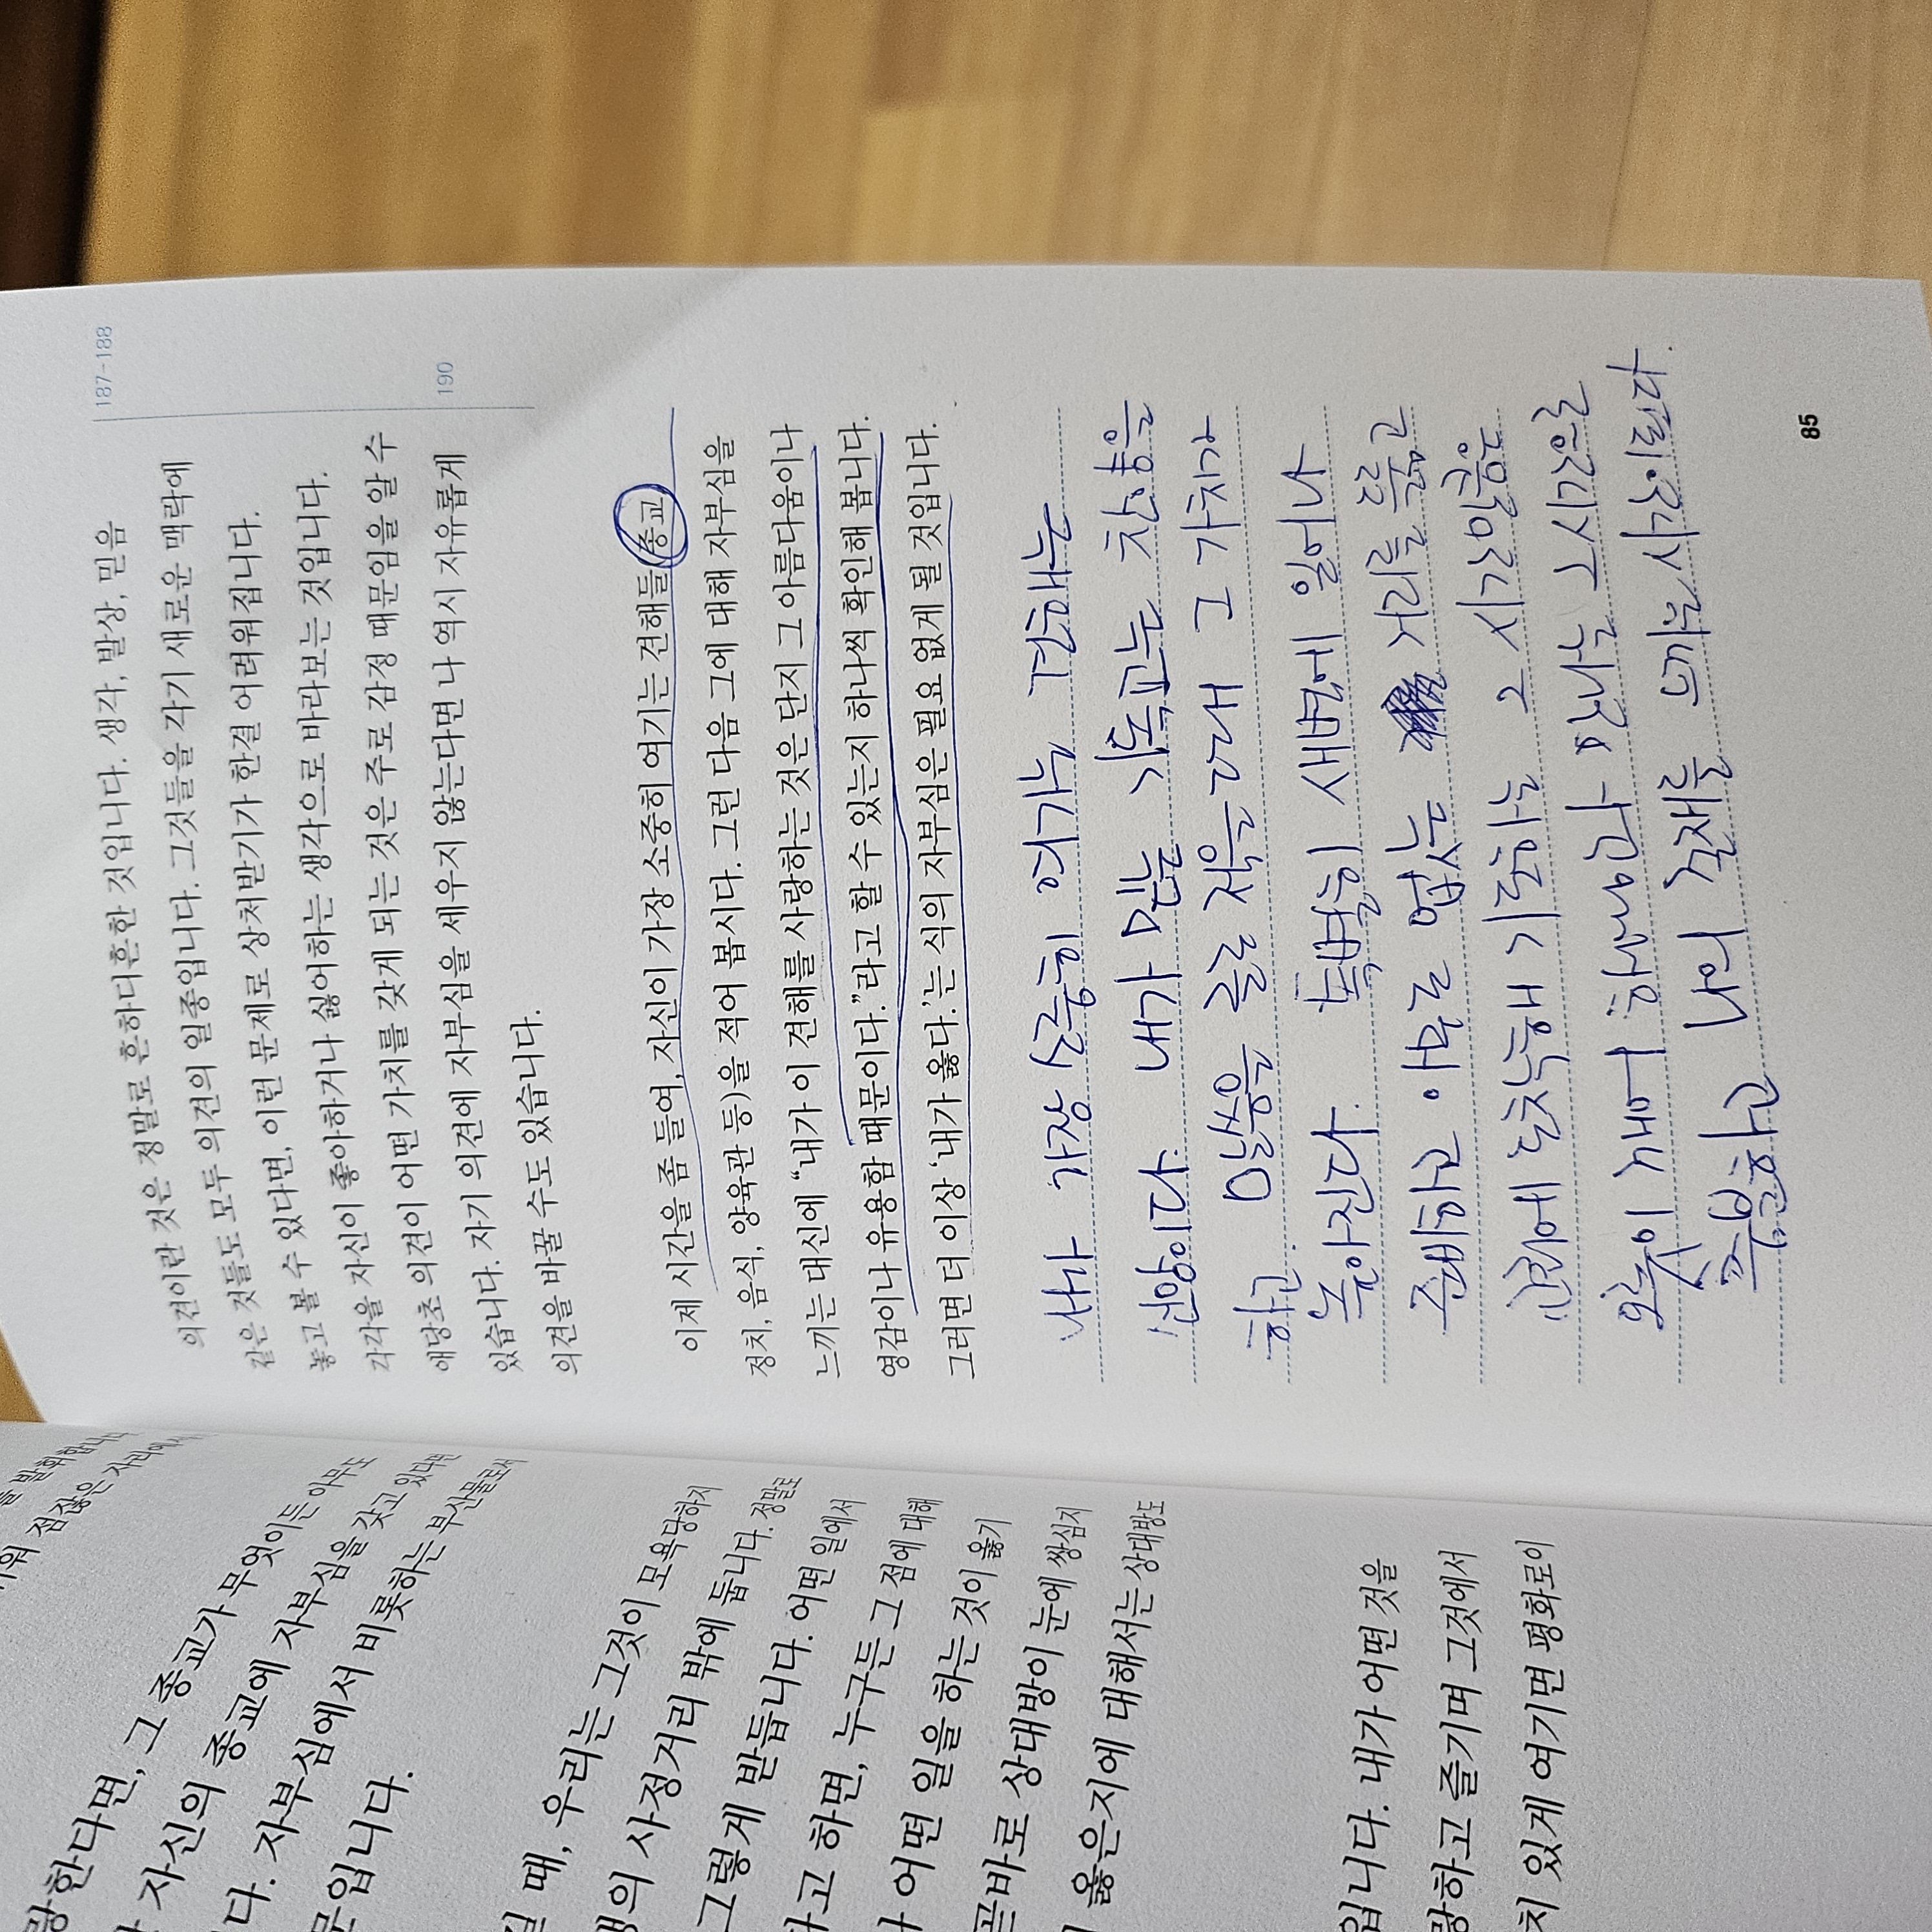 을 발휘합니다
점잖은 자리에서
랑한다면, 그 종교가 무엇이든 아무도
자신의 종교에 자부심을 갖고 있다면
다. 자부심에서 비롯하는 부산물로서
문입니다.
길 때, 우리는 그것이 모욕당하지
생의 사정거리 밖에 둡니다. 정말로
그렇게 받듭니다. 어떤 일에서
다고 하면, 누구든 그 점에 대해
어떤 일을 하는 것이 옳기
곧바로 상대방이 눈에 쌍심지
옳은지에 대해서는 상대방도
입니다. 내가 어떤 것을
랑하고 즐기며 그것에서
치 있게 여기면 평화로이
의견이란 것은 정말로 흔하디흔한 것입니다. 생각, 발상, 믿음
187-188
같은 것들도 모두 의견의 일종입니다. 그것들을 각기 새로운 맥락에
놓고 볼 수 있다면, 이런 문제로 상처받기가 한결 어려워집니다.
각각을 자신이 좋아하거나 싫어하는 생각으로 바라보는 것입니다.
애당초 의견이 어떤 가치를 갖게 되는 것은 주로 감정 때문임을 알 수
있습니다. 자기 의견에 자부심을 세우지 않는다면 나 역시 자유롭게
190
의견을 바꿀 수도 있습니다.
이제 시간을 좀 들여, 자신이 가장 소중히 여기는 견해들(종교,
정치, 음식, 양육관 등)을 적어 봅시다. 그런 다음 그에 대해 자부심을
느끼는 대신에 “내가 이 견해를 사랑하는 것은 단지 그 아름다움이나
영감이나 유용함 때문이다.”라고 할 수 있는지 하나씩 확인해 봅니다.
그러면 더 이상 ‘내가 옳다.’는 식의 자부심은 필요 없게 될 것입니다.
내가 가장 소중히 여기는 견해는
신앙이다. 내가 믿는 기독교는 찬양을
하고. 말씀을 글로 적을 때 그 가치가
높아진다. 특별히 새벽에 일어나
준비하고 아무도 없는 거리를 뚫고
교회에 도착해 기도하는 그 시간만큼은
오롯이 깨어 하나님과 만나는 그 시간으로
충분하고 나의 존재를 느끼는 시간이된다.
85